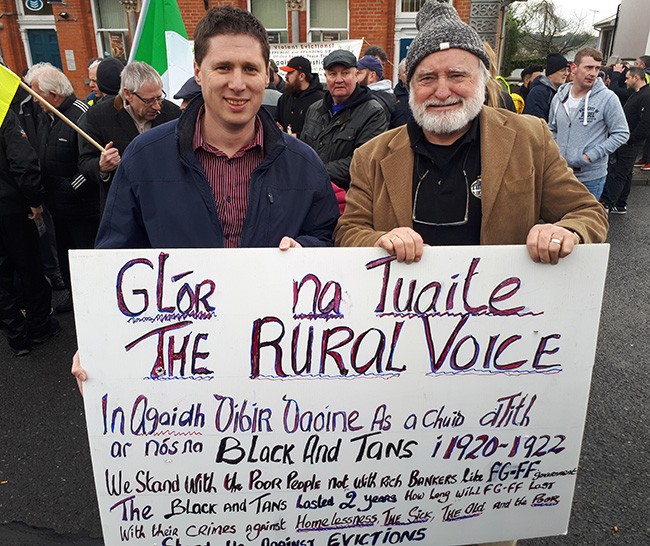 Violent Evictions
GLÓR na Tuaite
THE RURAL VOICE
In Agaidh Díbir Daoine As a Chuid dTith
ar nós na BLACK AND TANS i 1920-1922
We Stand With the Poor People not with Rich BANKERS Like FG-FF government
The BLACK and TANS Lasted 2 years How long Will FG-FF Last
With their CRIMES against Homelessness, THE SICK, THE Old and the Poor
Stand Up Against EVICTIONS